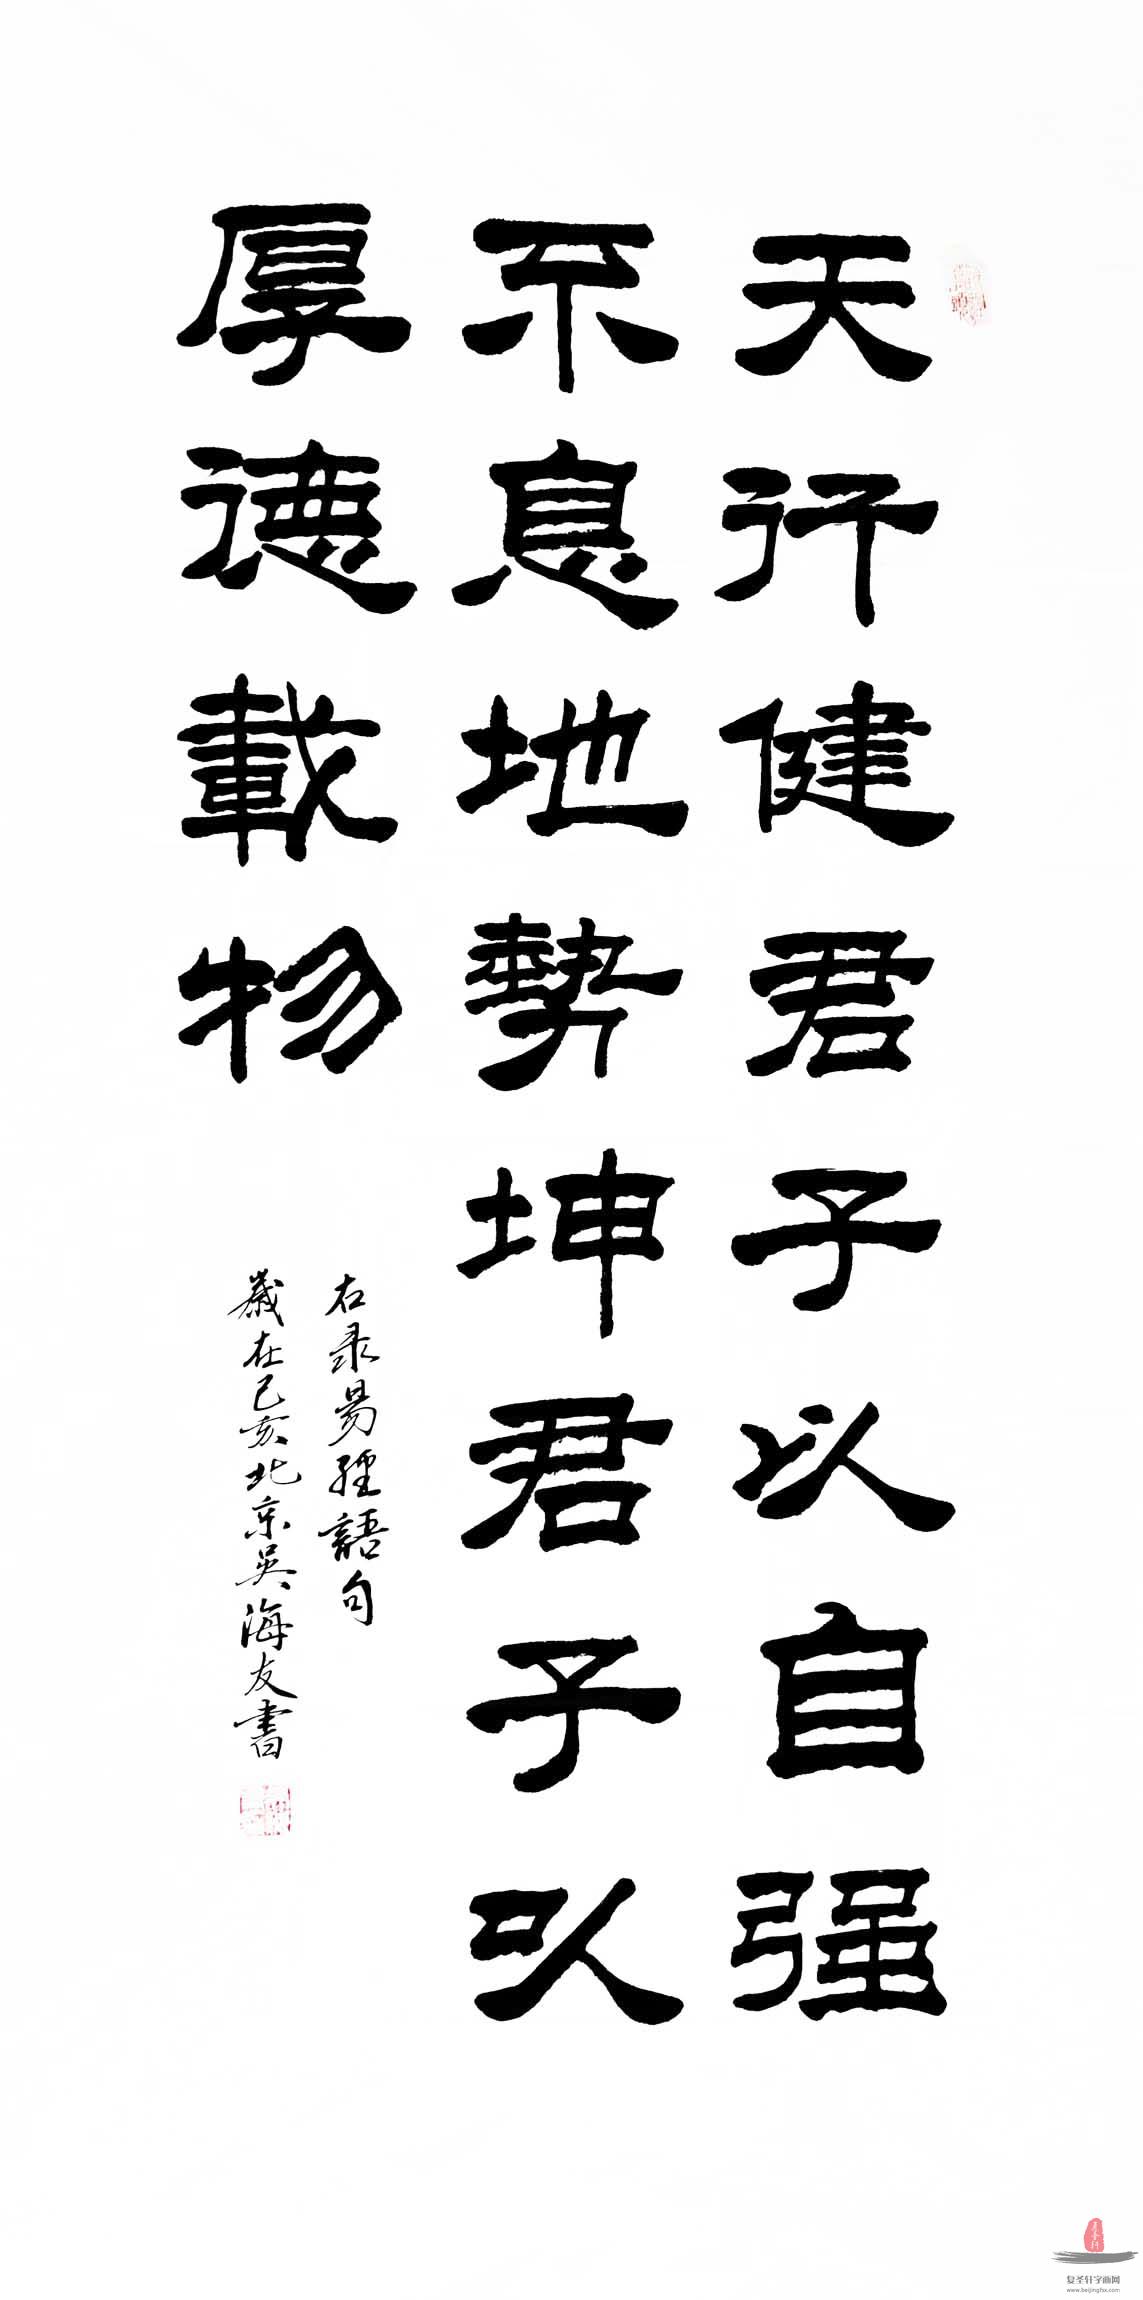 天行健君子以自强
不息地勢坤君子以
厚德載物
右录易經語句
歲在己亥北京吴海友書
复圣轩字画网
www.beijingfsx.com